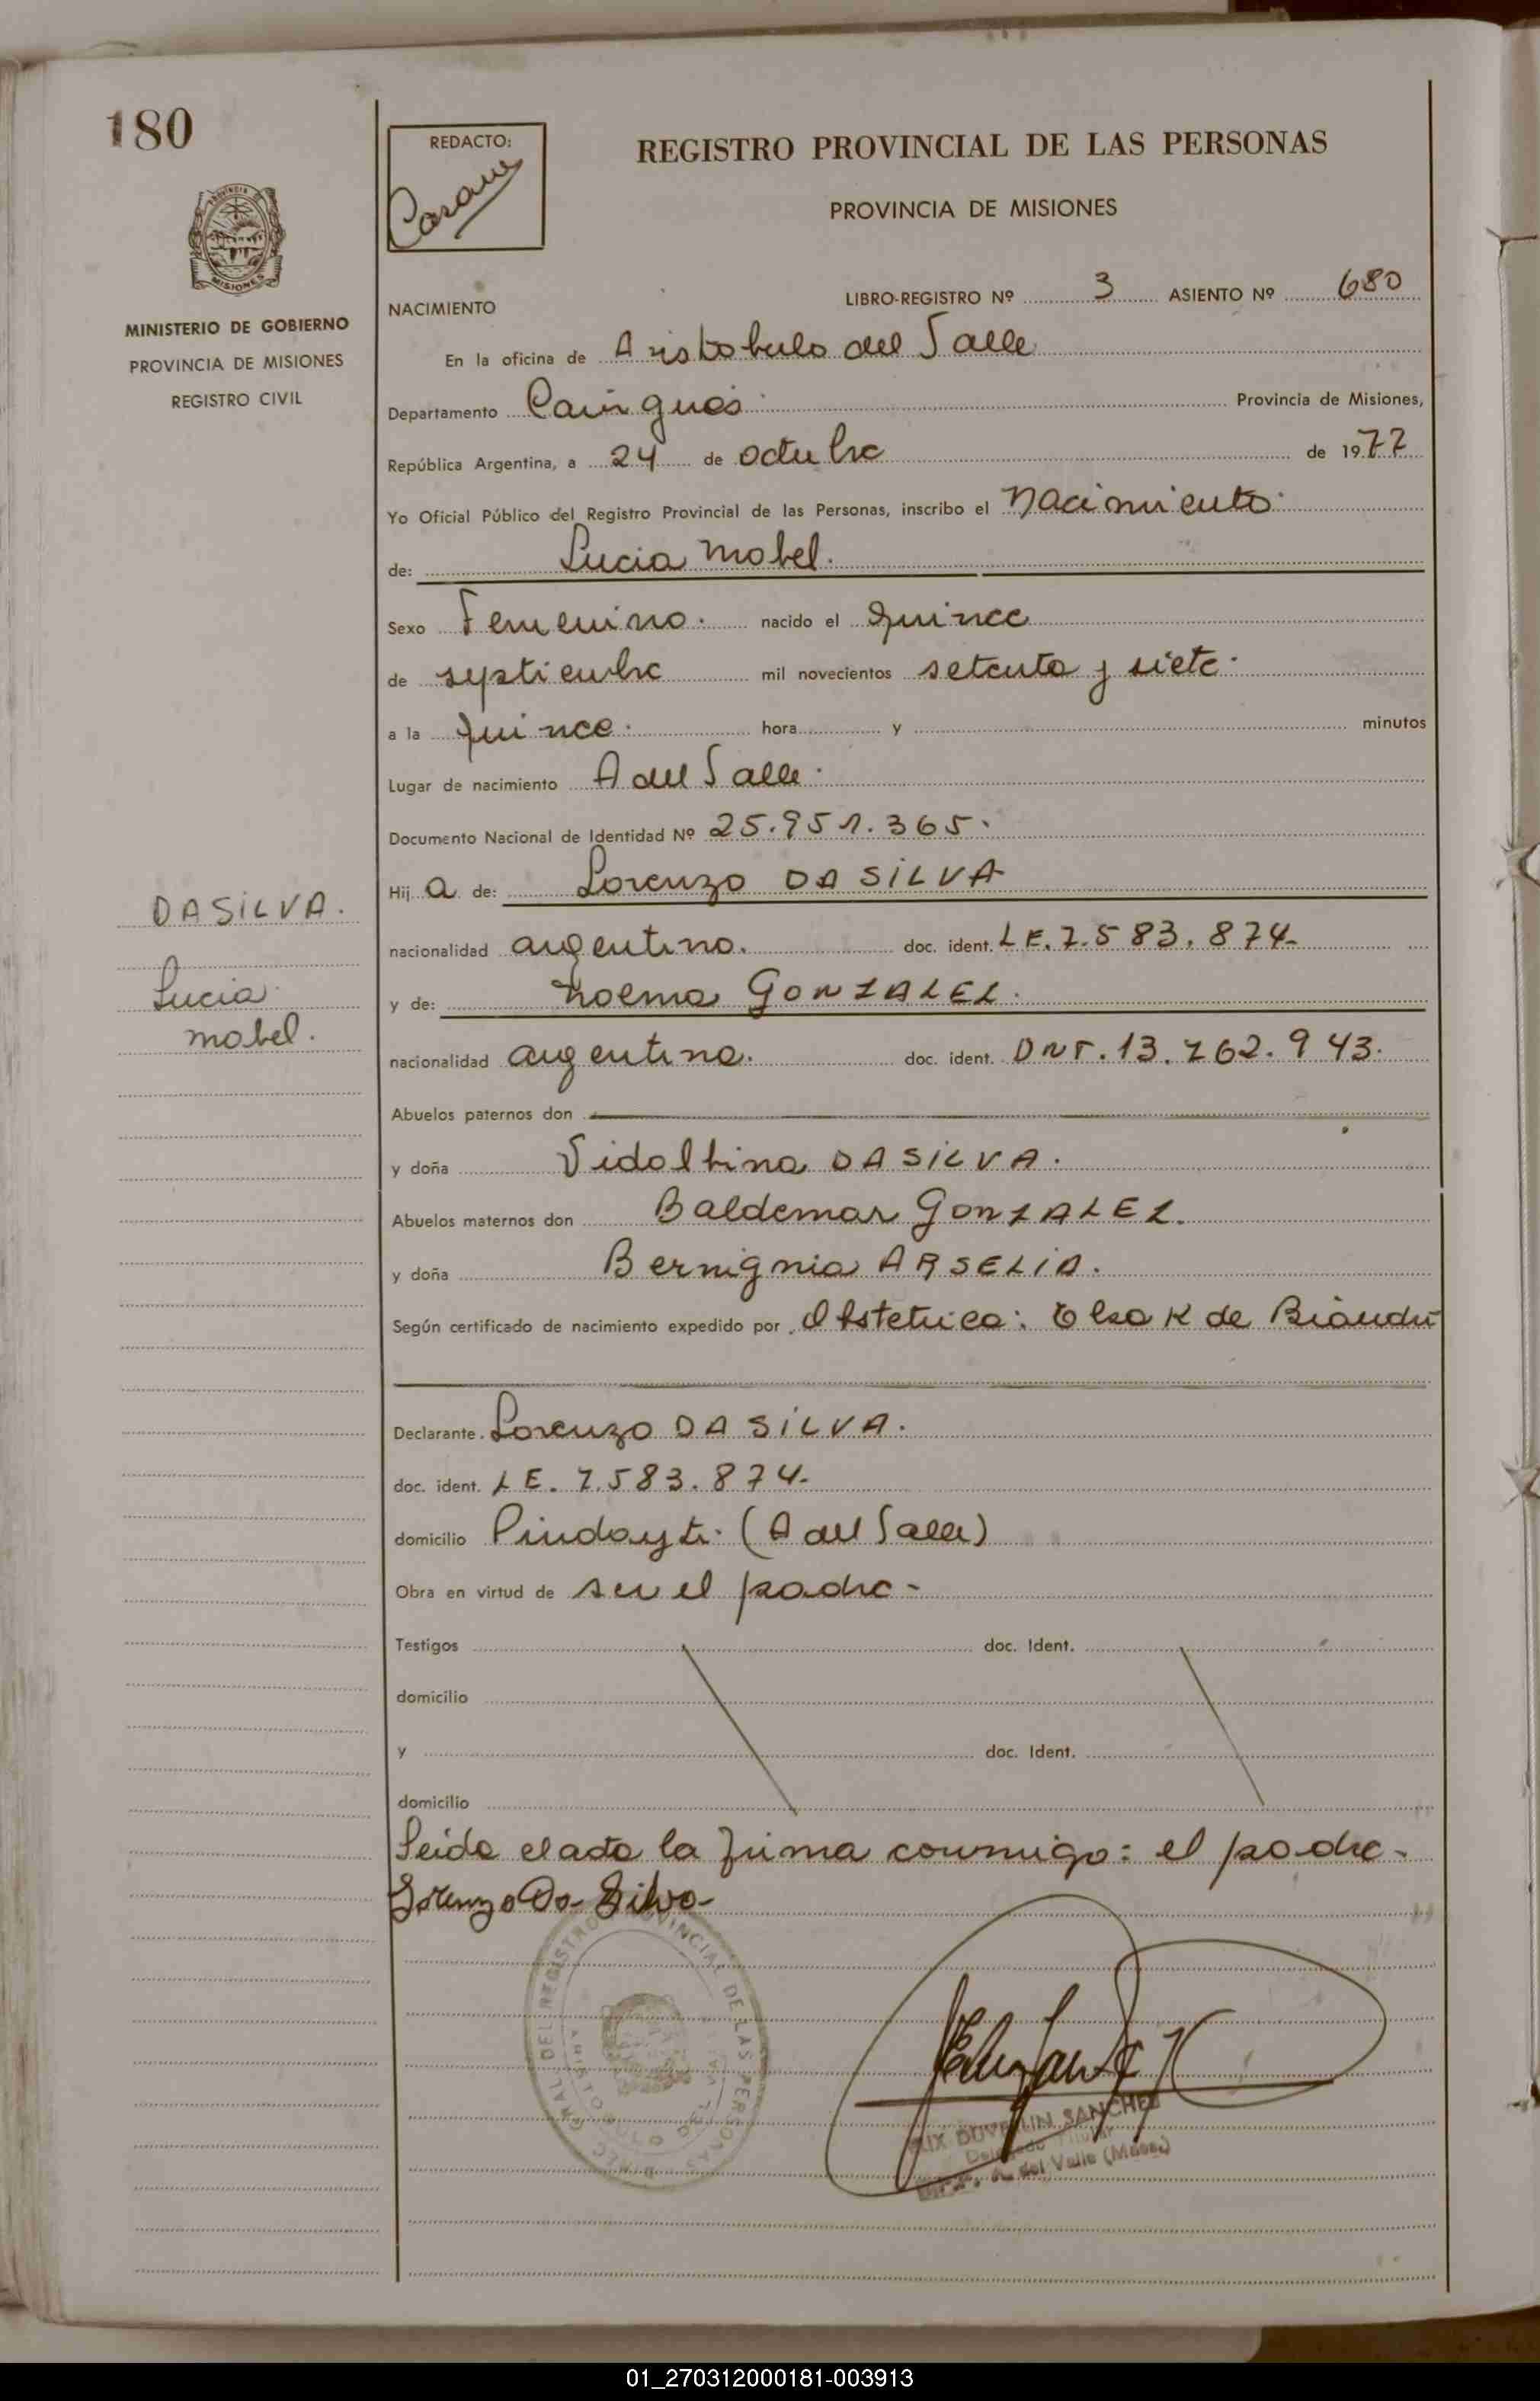 180
REDACTO:
REGISTRO PROVINCIAL DE LAS PERSONAS
PROVINCIA DE MISIONES
MISIONES
MINISTERIO DE GOBIERNO
PROVINCIA DE MISIONES
REGISTRO CIVIL
NACIMIENTO
LIBRO-REGISTRO Nº 3 ASIENTO Nº 680
En la oficina de Aristobulo del Valle
Departamento Cainguás Provincia de Misiones,
República Argentina, a 24 de octubre de 1977
Yo Oficial Público del Registro Provincial de las Personas, inscribo el Nacimiento
de: Lucia Mabel.
Sexo Femenino. nacido el quince
de septiembre mil novecientos setenta y siete.
a la quince. hora y minutos
Lugar de nacimiento A del Valle.
Documento Nacional de Identidad Nº 25.951.365.
Hij a de: Lorenzo DA SILVA
DA SILVA.
Lucia
Mabel.
nacionalidad argentino. doc. ident. LE. 7.583.874-
y de: Noema GONZALEZ.
nacionalidad argentina. doc. ident. DNI. 13.762.943.
Abuelos paternos don
y doña Vidalbina DA SILVA.
Abuelos maternos don Baldemar GONZALEZ.
y doña Bernignia ARSELIA.
Según certificado de nacimiento expedido por Obstetrica: Elsa K de
Declarante Lorenzo DA SILVA.
doc. ident. LE. 7.583.874-
domicilio Pindayti (A del Valle)
Obra en virtud de ser el padre-
Testigos doc. Ident.
domicilio
y doc. Ident.
domicilio
Leida el acta la firma conmigo: el padre-
Lorenzo Da Silva-
DIREC. GRAL. DEL REGISTRO PROVINCIAL DE LAS PERSONAS
ARISTOBULO DEL VALLE
SANCHEZ
Delegado Titular
del Valle (Mnes.)
01_270312000181-003913